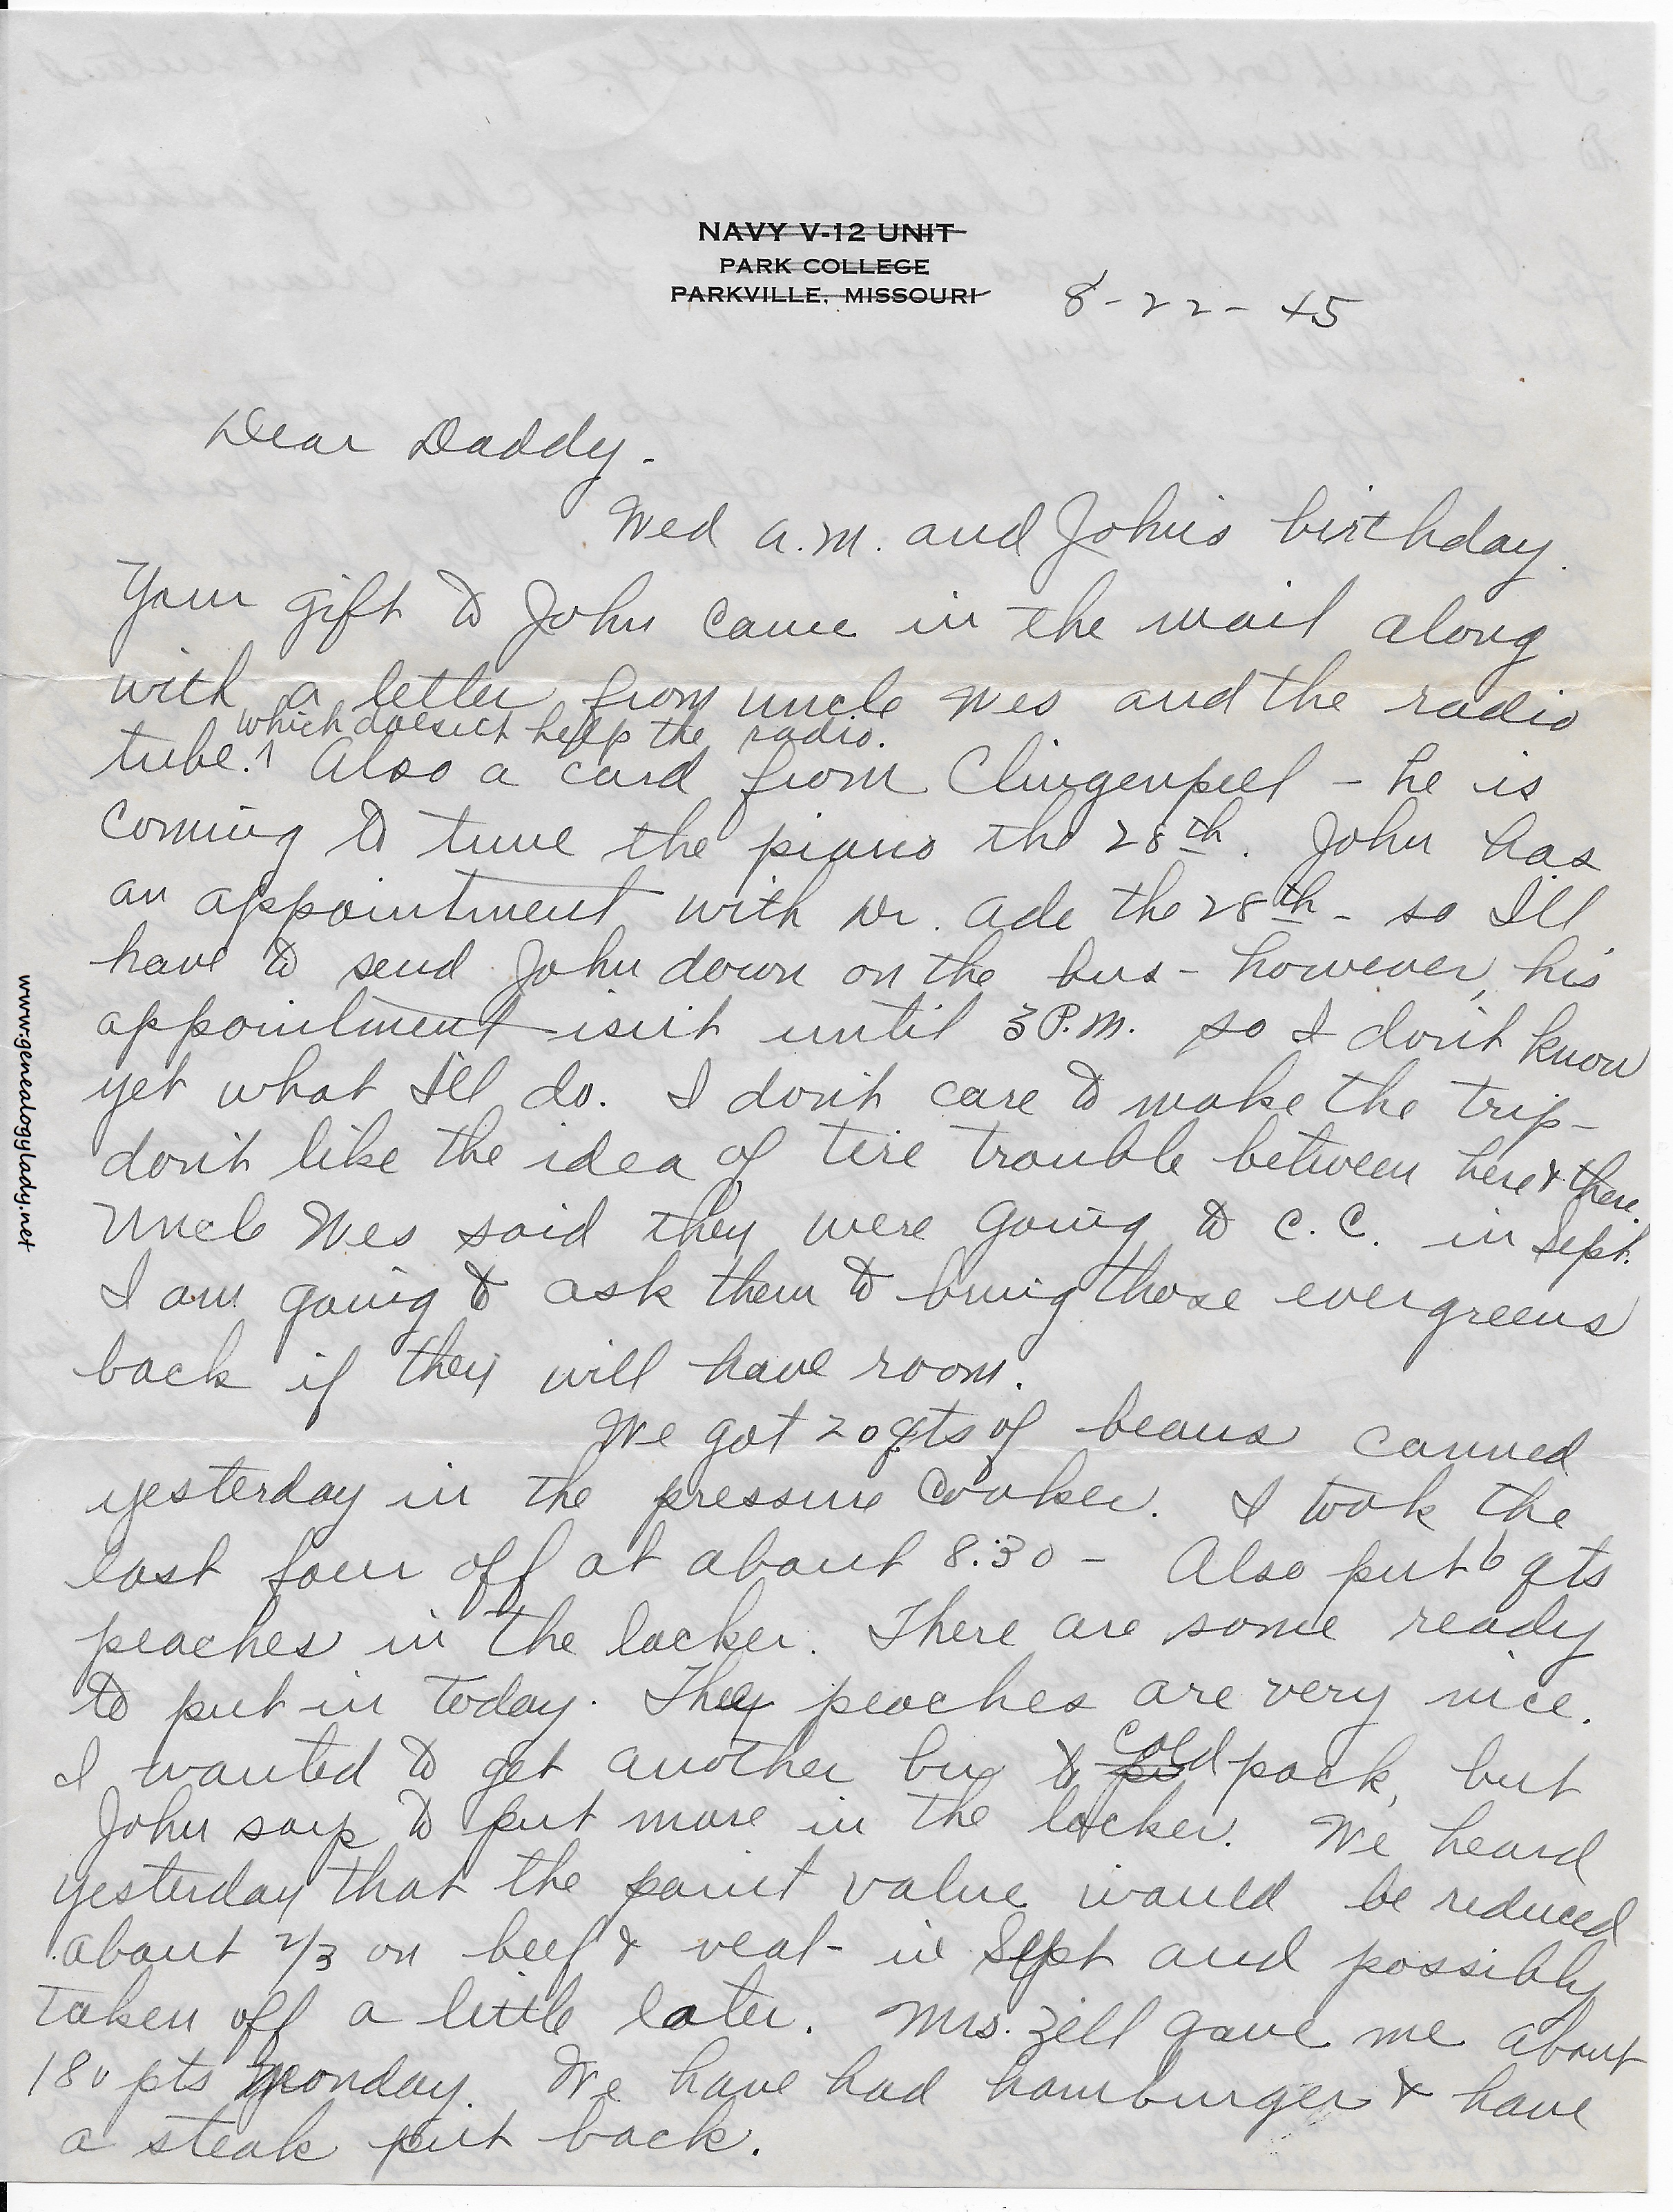 NAVY V-12 UNIT
PARK COLLEGE
PARKVILLE, MISSOURI
8-22-45
Dear Daddy.
Wed a.m. and John's birthday.
Your gift to John came in the mail along
with a letter from uncle Wes and the radio
which doesn't help the radio.
tube.^ Also a card from Clingenpeel - he is
coming to tune the piano the 28th. John has
an appointment with Dr. Ade the 28th - so I'll
have to send John down on the bus - however, his
appointment isn't until 3 P.M. so I don't know
yet what I'll do. I don't care to make the trip -
don't like the idea of tire trouble between here & there.
Uncle Wes said they were going to C. C. in Sept.
I am going to ask them to bring those evergreens
back if they will have room.
We got 20 qts of beans canned
yesterday in the pressure cooker. I took the
last four off at about 8:30 - Also put 6 qts
peaches in the locker. There are some ready
to put in today. They peaches are very nice.
I wanted to get another bu to cold pack, but
John says to put more in the locker. We heard
yesterday that the point value would be reduced
about 2/3 on beef & veal - in Sept and possibly
taken off a little later. Mrs. Zell gave me about
180 pts Monday. We have had hamburger & have
a steak put back.
www.genealogylady.net